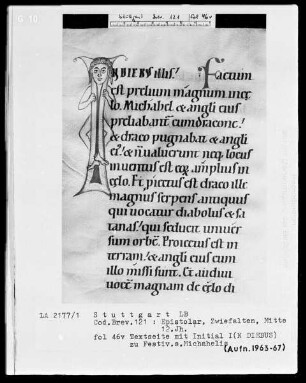 G 10
Stuttgart Brev. 121 fol 46v
IN DIEBUS illis. Factum
est prelium magnum in ce
lo. Michahel & angli eius
preliabant cum dracone.
& draco pugnabat & angli
ei. & n ualuerunt neq locus
inuentus est eoz amplius in
celo. Et piectus est draco ille
magnus serpens antiquus
qui uocatur diabolus & sa
tanas. qui seducit uniuer
sum orbe. Proiectus est in
terram. & angeli eius cum
illo missi sunt. Et audiui
uoce magnam de celo di
LA 2177/1 Stuttgart LB
Cod.Brev.121 : Epistolar, Zwiefalten, Mitte
12.Jh.
fol 46v Textseite mit Initial I(N DIEBUS)
zu Festiv.s.Michahelis
(Aufn.1963-67)